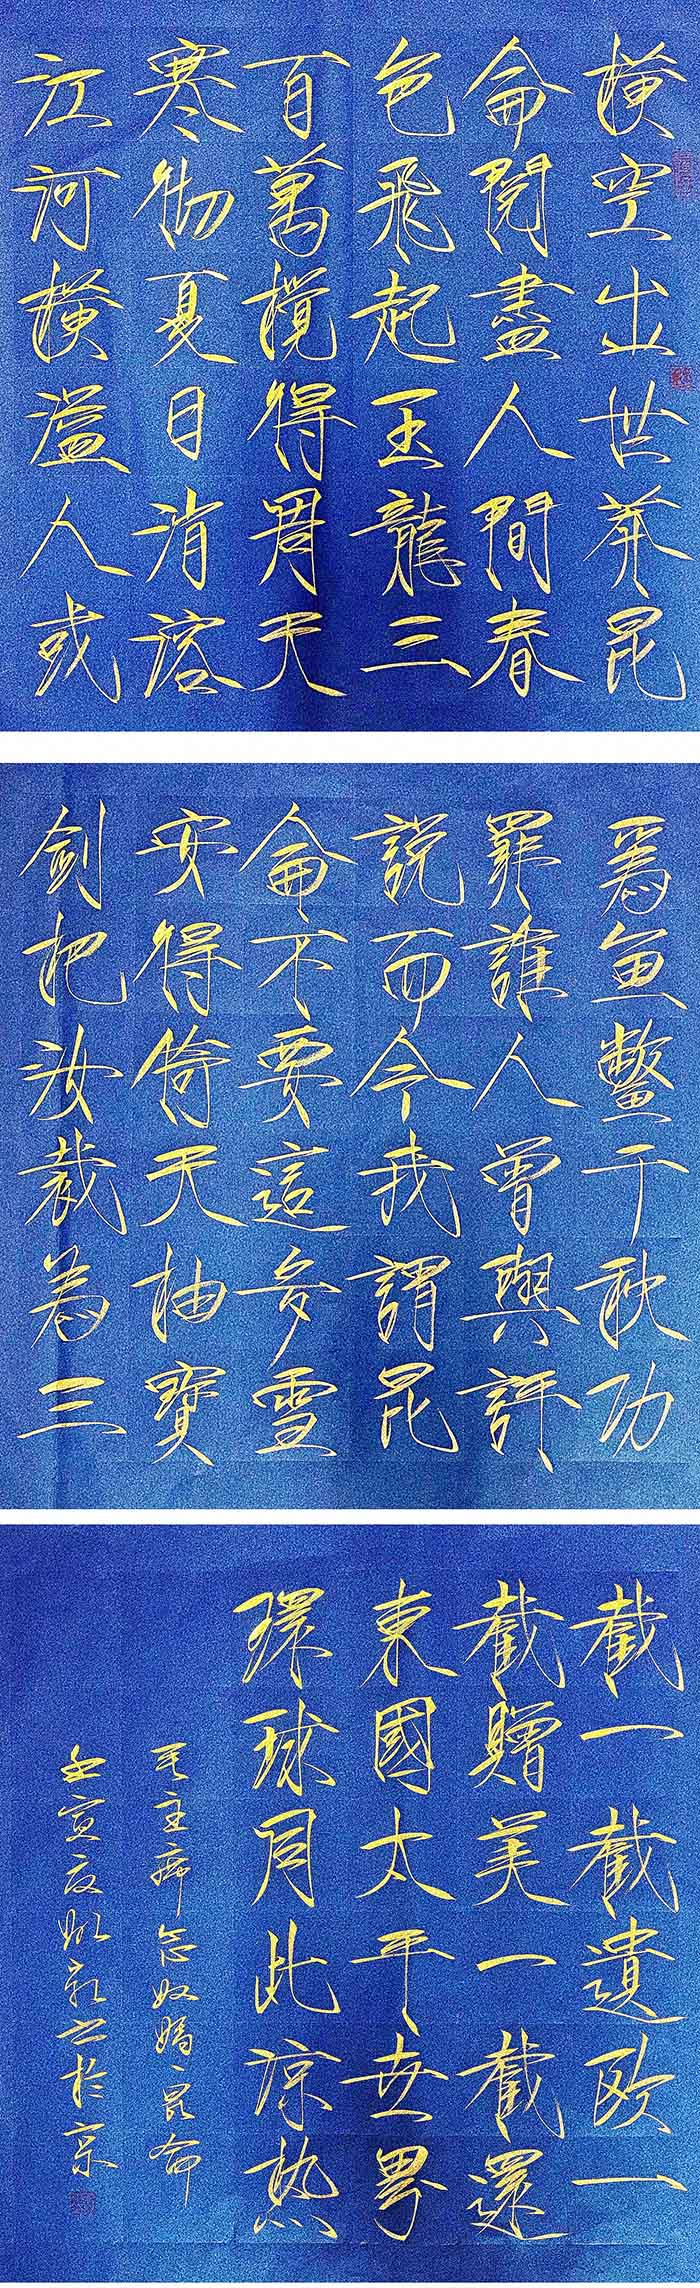 橫空出世莽昆
侖閱盡人間春
色飛起玉龍三
百萬攪得周天
寒彻夏日消溶
江河橫溢人或
為魚鱉千秋功
罪誰人曾與評
說而今我謂昆
侖不要這多雪
安得倚天抽寶
劍把汝裁為三
截一截遺歐一
截贈美一截還
東國太平世界
環球同此涼熱
毛主席念奴嬌昆侖
壬寅夏姚书於京